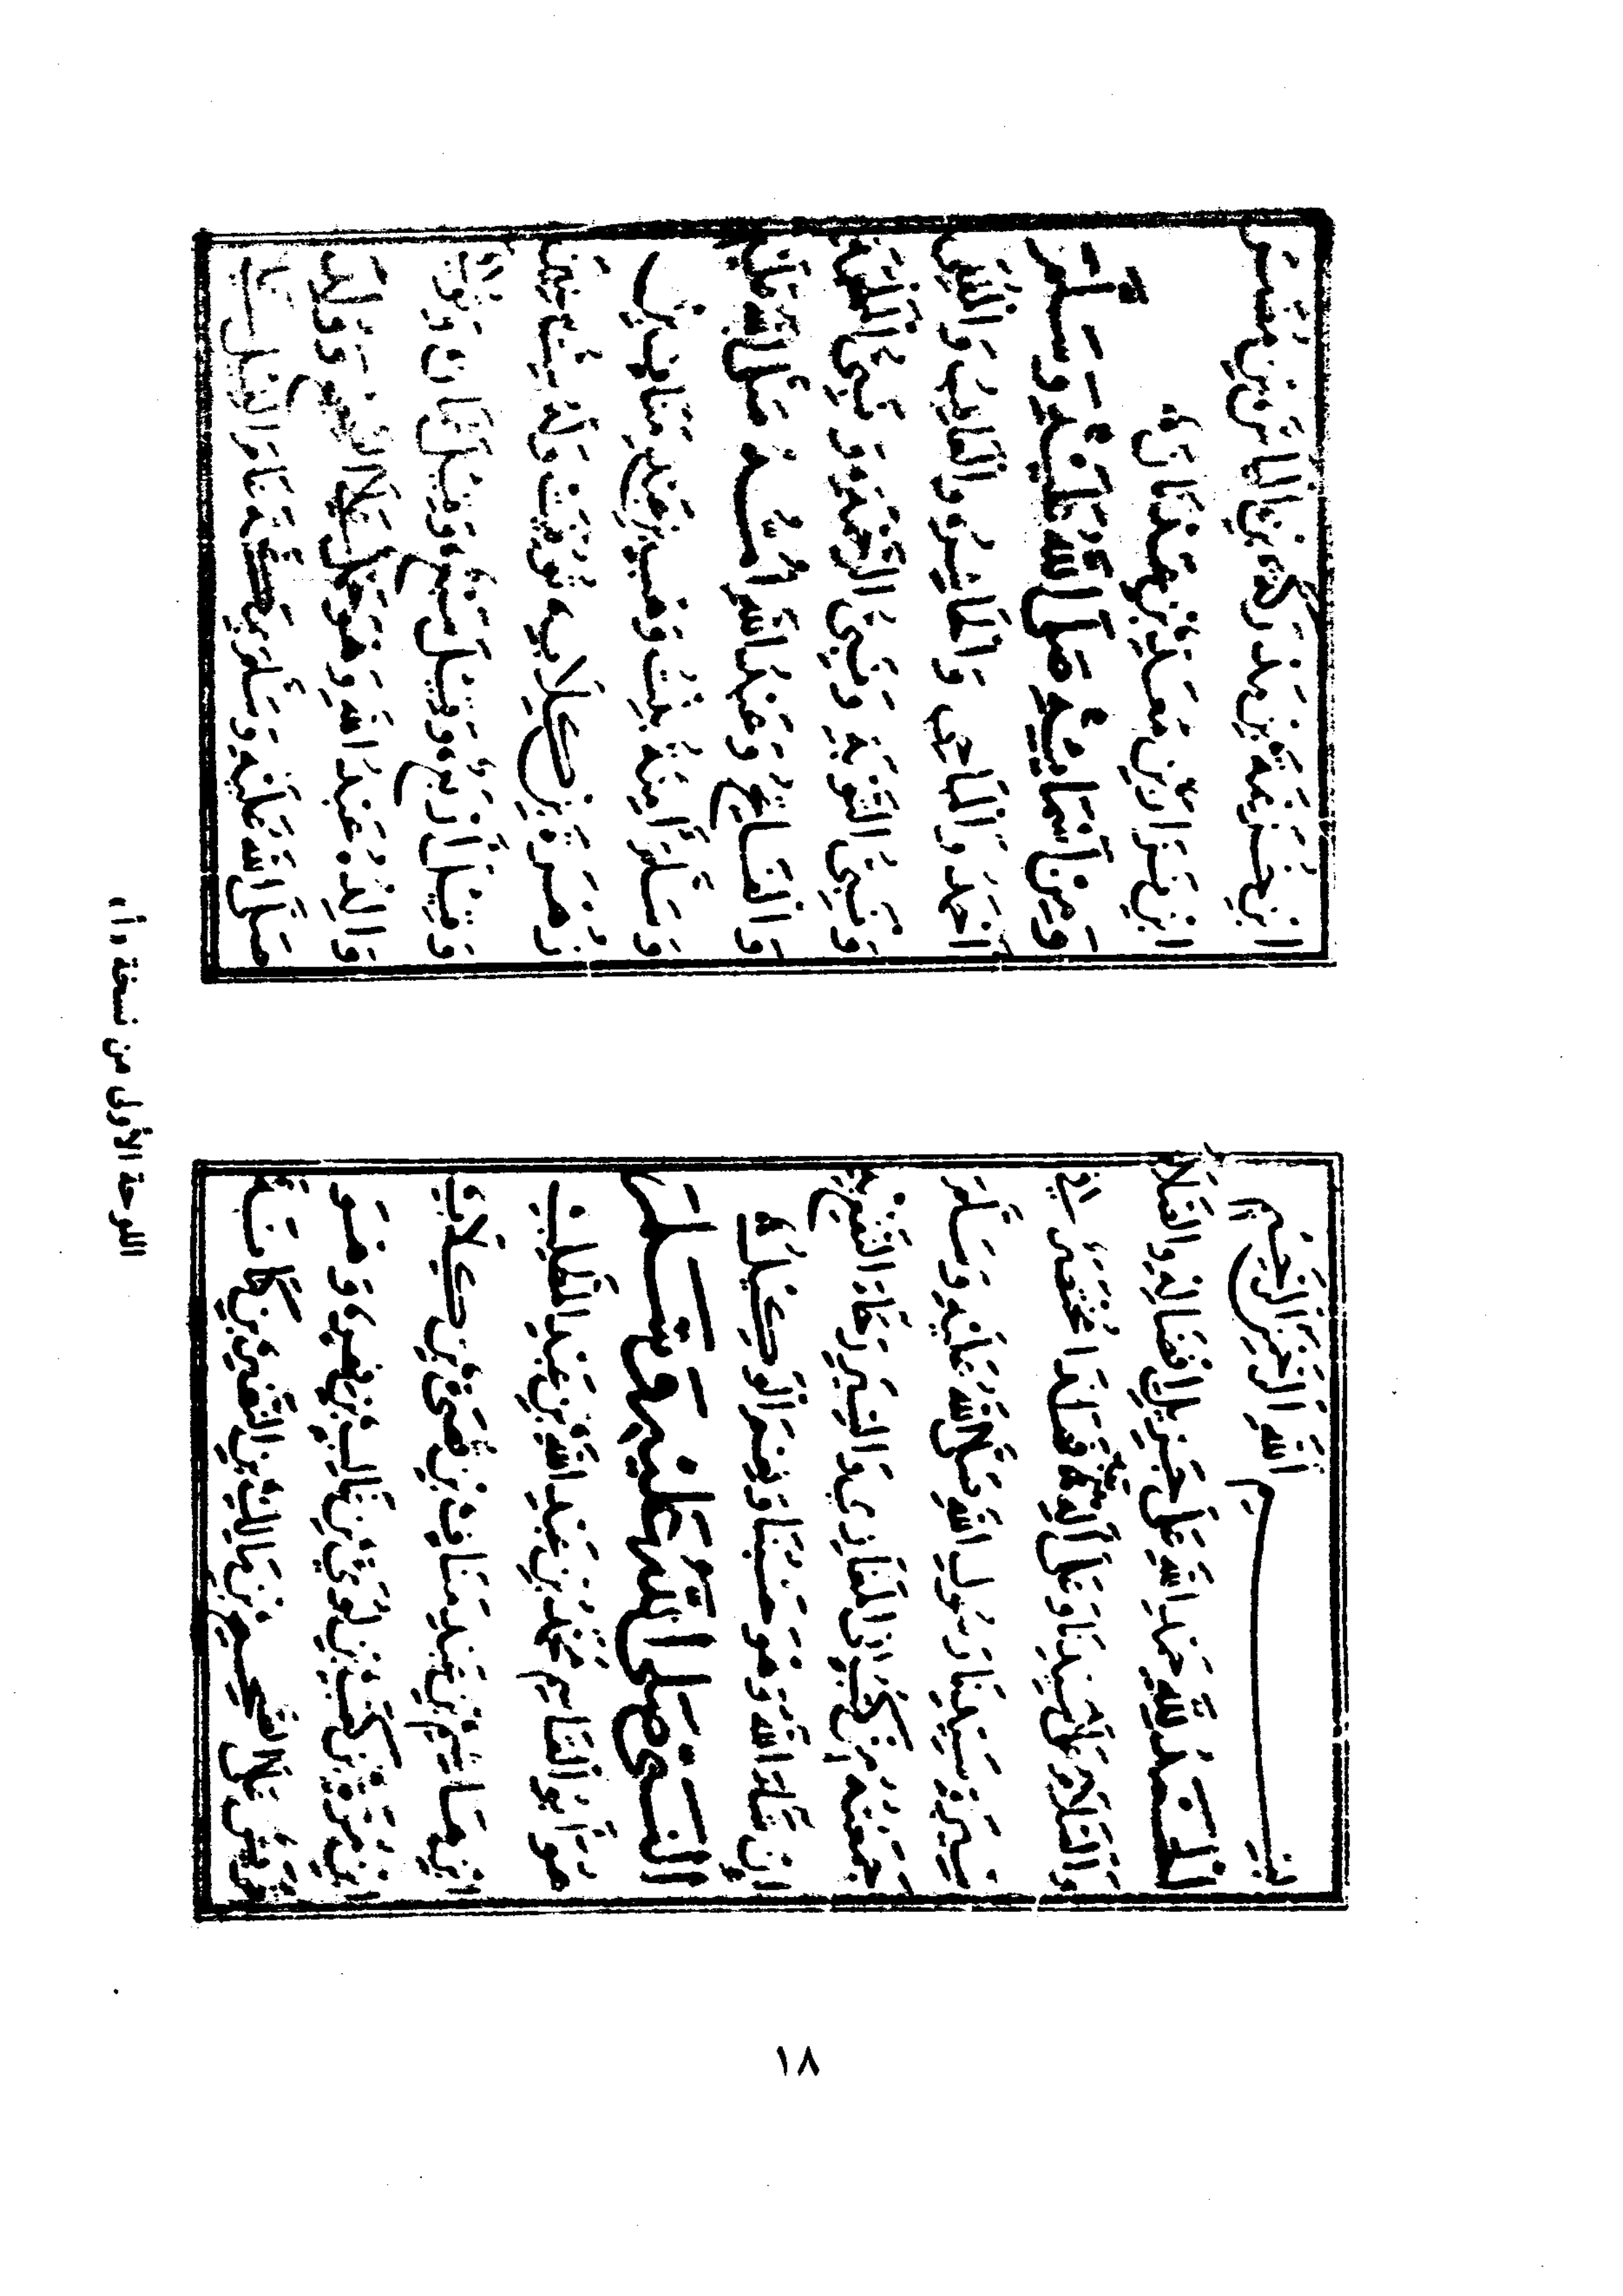 بسم الله الرحمن الرحيم
الحمد لله حمد الله على جزيل افضاله والصلاة
والسلام على سيدنا وعلى آله وبعد فهذا مختصر في
سيرة سيدنا رسول الله صلى الله عليه وسلم
جمعته من كتب المغازي والسير رجاء النفع به
ان شاء الله وهو حسبنا ونعم الوكيل
النبي صلى الله عليه وسلم
هو أبو القاسم محمد بن عبد الله بن عبد المطلب
ابن هاشم بن عبد مناف بن قصي بن كلاب
ابن مرة بن كعب بن لؤي بن غالب بن فهر وهو
قريش على الصحيح بن مالك بن النضر بن كنانة
ابن خزيمة بن مدركة بن الياس بن مضر
ابن نزار بن معد بن عدنان
ومن أسمائه صلى الله عليه وسلم
احمد والماحي والحاشر والعاقب والمقفى
ونبي التوبة ونبي الرحمة ونبي الملحمة
والفاتح وعبد الله أمه صلى الله عليه
وسلم آمنة بنت وهب بن عبد مناف بن
زهرة بن كلاب توفيت وله ست سنين
وقيل أربع وقيل سبع وقيل ثمان
والده عبد الله وهو على الاصح
صلى الله عليه وسلم بمكة
اللوحة الأولى من نسخة «أ»
١٨